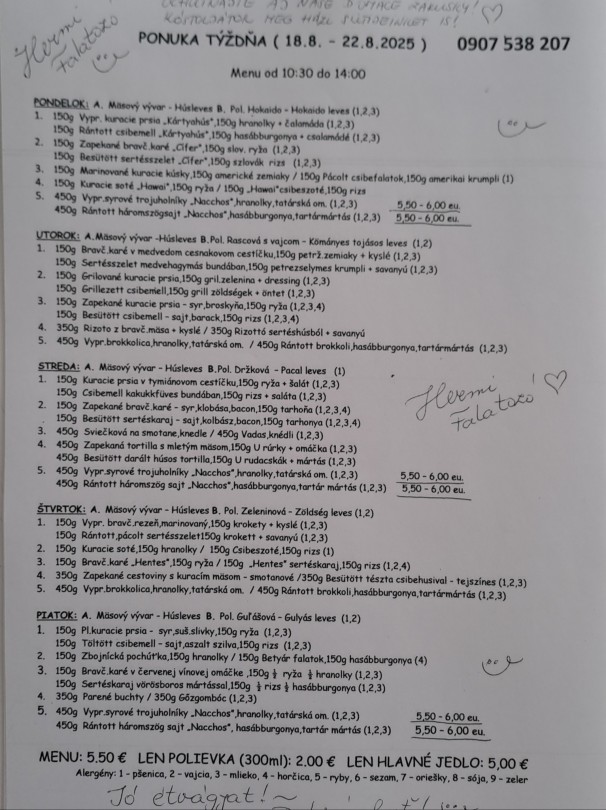 OCHUTNAJTE AJ NAŠE DOMÁCE ZÁKUSKY!
KÓSTOLJÁTOK MEG HÁZI SÜTEINKET IS!
Hermi
Falatozó
PONUKA TÝŽDŇA ( 18.8. - 22.8.2025 ) 0907 538 207
Menu od 10:30 do 14:00
PONDELOK: A. Mäsový vývar - Húsleves B. Pol. Hokaido - Hokaido leves (1,2,3)
1. 150g Vypr. kuracie prsia „Kártyahús",150g hranolky + čalamáda (1,2,3)
150g Rántott csibemell „Kártyahús",150g hasábburgonya + csalamádé (1,2,3)
2. 150g Zapekané bravč.karé „Cifer",150g slov. ryža (1,2,3)
150g Besütött sertésszelet „Cifer",150g szlovák rizs (1,2,3)
3. 150g Marinované kuracie kúsky,150g americké zemiaky / 150g Pácolt csibefalatok,150g amerikai krumpli (1)
4. 150g Kuracie soté „Hawai",150g ryža / 150g „Hawai"csibeszoté,150g rizs
5. 450g Vypr.syrové trojuholníky „Nacchos",hranolky,tatárská om. (1,2,3) 5,50 - 6,00 eu.
450g Rántott háromszögsajt „Nacchos",hasábburgonya,tartármártás (1,2,3) 5,50 - 6,00 eu.
UTOROK: A.Mäsový vývar -Húsleves B.Pol. Rascová s vajcom - Köményes tojásos leves (1,2)
1. 150g Bravč.karé v medvedom cesnakovom cestíčku,150g petrž.zemiaky + kyslé (1,2,3)
150g Sertésszelet medvehagymás bundában,150g petrezselymes krumpli + savanyú (1,2,3)
2. 150g Grilované kuracie prsia,150g gril.zelenina + dressing (1,2,3)
150g Grillezett csibemell,150g grill zöldségek + öntet (1,2,3)
3. 150g Zapekané kuracie prsia - syr,broskyňa,150g ryža (1,2,3,4)
150g Besütött csibemell - sajt,barack,150g rizs (1,2,3,4)
4. 350g Rizoto z bravč.mäsa + kyslé / 350g Rizottó sertéshúsból + savanyú
5. 450g Vypr.brokkolica,hranolky,tatárská om. / 450g Rántott brokkoli,hasábburgonya,tartármártás (1,2,3)
STREDA: A. Mäsový vývar - Húsleves B.Pol. Držková - Pacal leves (1)
1. 150g Kuracie prsia v tymiánovom cestíčku,150g ryža + šalát (1,2,3)
150g Csibemell kakukkfüves bundában,150g rizs + saláta (1,2,3)
2. 150g Zapekané bravč.karé - syr,klobása,bacon,150g tarhoňa (1,2,3,4)
150g Besütött sertéskaraj - sajt,kolbász,bacon,150g tarhonya (1,2,3,4)
3. 450g Sviečková na smotane,knedle / 450g Vadas,knédli (1,2,3)
4. 150g Zapekaná tortilla s mletým mäsom,150g U rúrky + omáčka (1,2,3)
150g Besütött darált húsos tortilla,150g U rudacskák + mártás (1,2,3)
5. 450g Vypr.syrové trojuholníky „Nacchos",hranolky,tatárská om. (1,2,3) 5,50 - 6,00 eu.
450g Rántott háromszög sajt „Nacchos",hasábburgonya,tartár mártás (1,2,3) 5,50 - 6,00 eu.
Hermi
Falatozó
ŠTVRTOK: A. Mäsový vývar - Húsleves B. Pol. Zeleninová - Zöldség leves (1,2)
1. 150g Vypr. bravč.rezeň,marinovaný,150g krokety + kyslé (1,2,3)
150g Rántott,pácolt sertésszelet150g krokett + savanyú (1,2,3)
2. 150g Kuracie soté,150g hranolky / 150g Csibeszoté,150g rizs (1)
3. 150g Bravč.karé „Hentes",150g ryža / 150g „Hentes" sertéskaraj,150g rizs (1,2,4)
4. 350g Zapekané cestoviny s kuracím mäsom - smotanové /350g Besütött tészta csibehusival - tejszínes (1,2,3)
5. 450g Vypr.brokkolica,hranolky,tatárská om. / 450g Rántott brokkoli,hasábburgonya,tartármártás (1,2,3)
PIATOK: A. Mäsový vývar - Húsleves B. Pol. Guľášová - Gulyás leves (1,2)
1. 150g Pl.kuracie prsia - syr,suš.slivky,150g ryža (1,2,3)
150g Töltött csibemell - sajt,aszalt szilva,150g rizs (1,2,3)
2. 150g Zbojnícká pochúťka,150g hranolky / 150g Betyár falatok,150g hasábburgonya (4)
3. 150g Bravč.karé v červenej vínovej omáčke ,150g ½ ryža ½ hranolky (1,2,3)
150g Sertéskaraj vörösboros mártással,150g ½ rizs ½ hasábburgonya (1,2,3)
4. 350g Parené buchty / 350g Gőzgombóc (1,2,3)
5. 450g Vypr.syrové trojuholníky „Nacchos",hranolky,tatárská om. (1,2,3) 5,50 - 6,00 eu.
450g Rántott háromszög sajt „Nacchos", hasábburgonya,tartár mártás (1,2,3) 5,50 - 6,00 eu.
MENU: 5,50 € LEN POLIEVKA (300ml): 2,00 € LEN HLAVNÉ JEDLO: 5,00 €
Alergény: 1 - pšenica, 2 - vajcia, 3 - mlieko, 4 - horčica, 5 - ryby, 6 - sezam, 7 - oriešky, 8 - sója, 9 - zeler
Jó étvágyat!